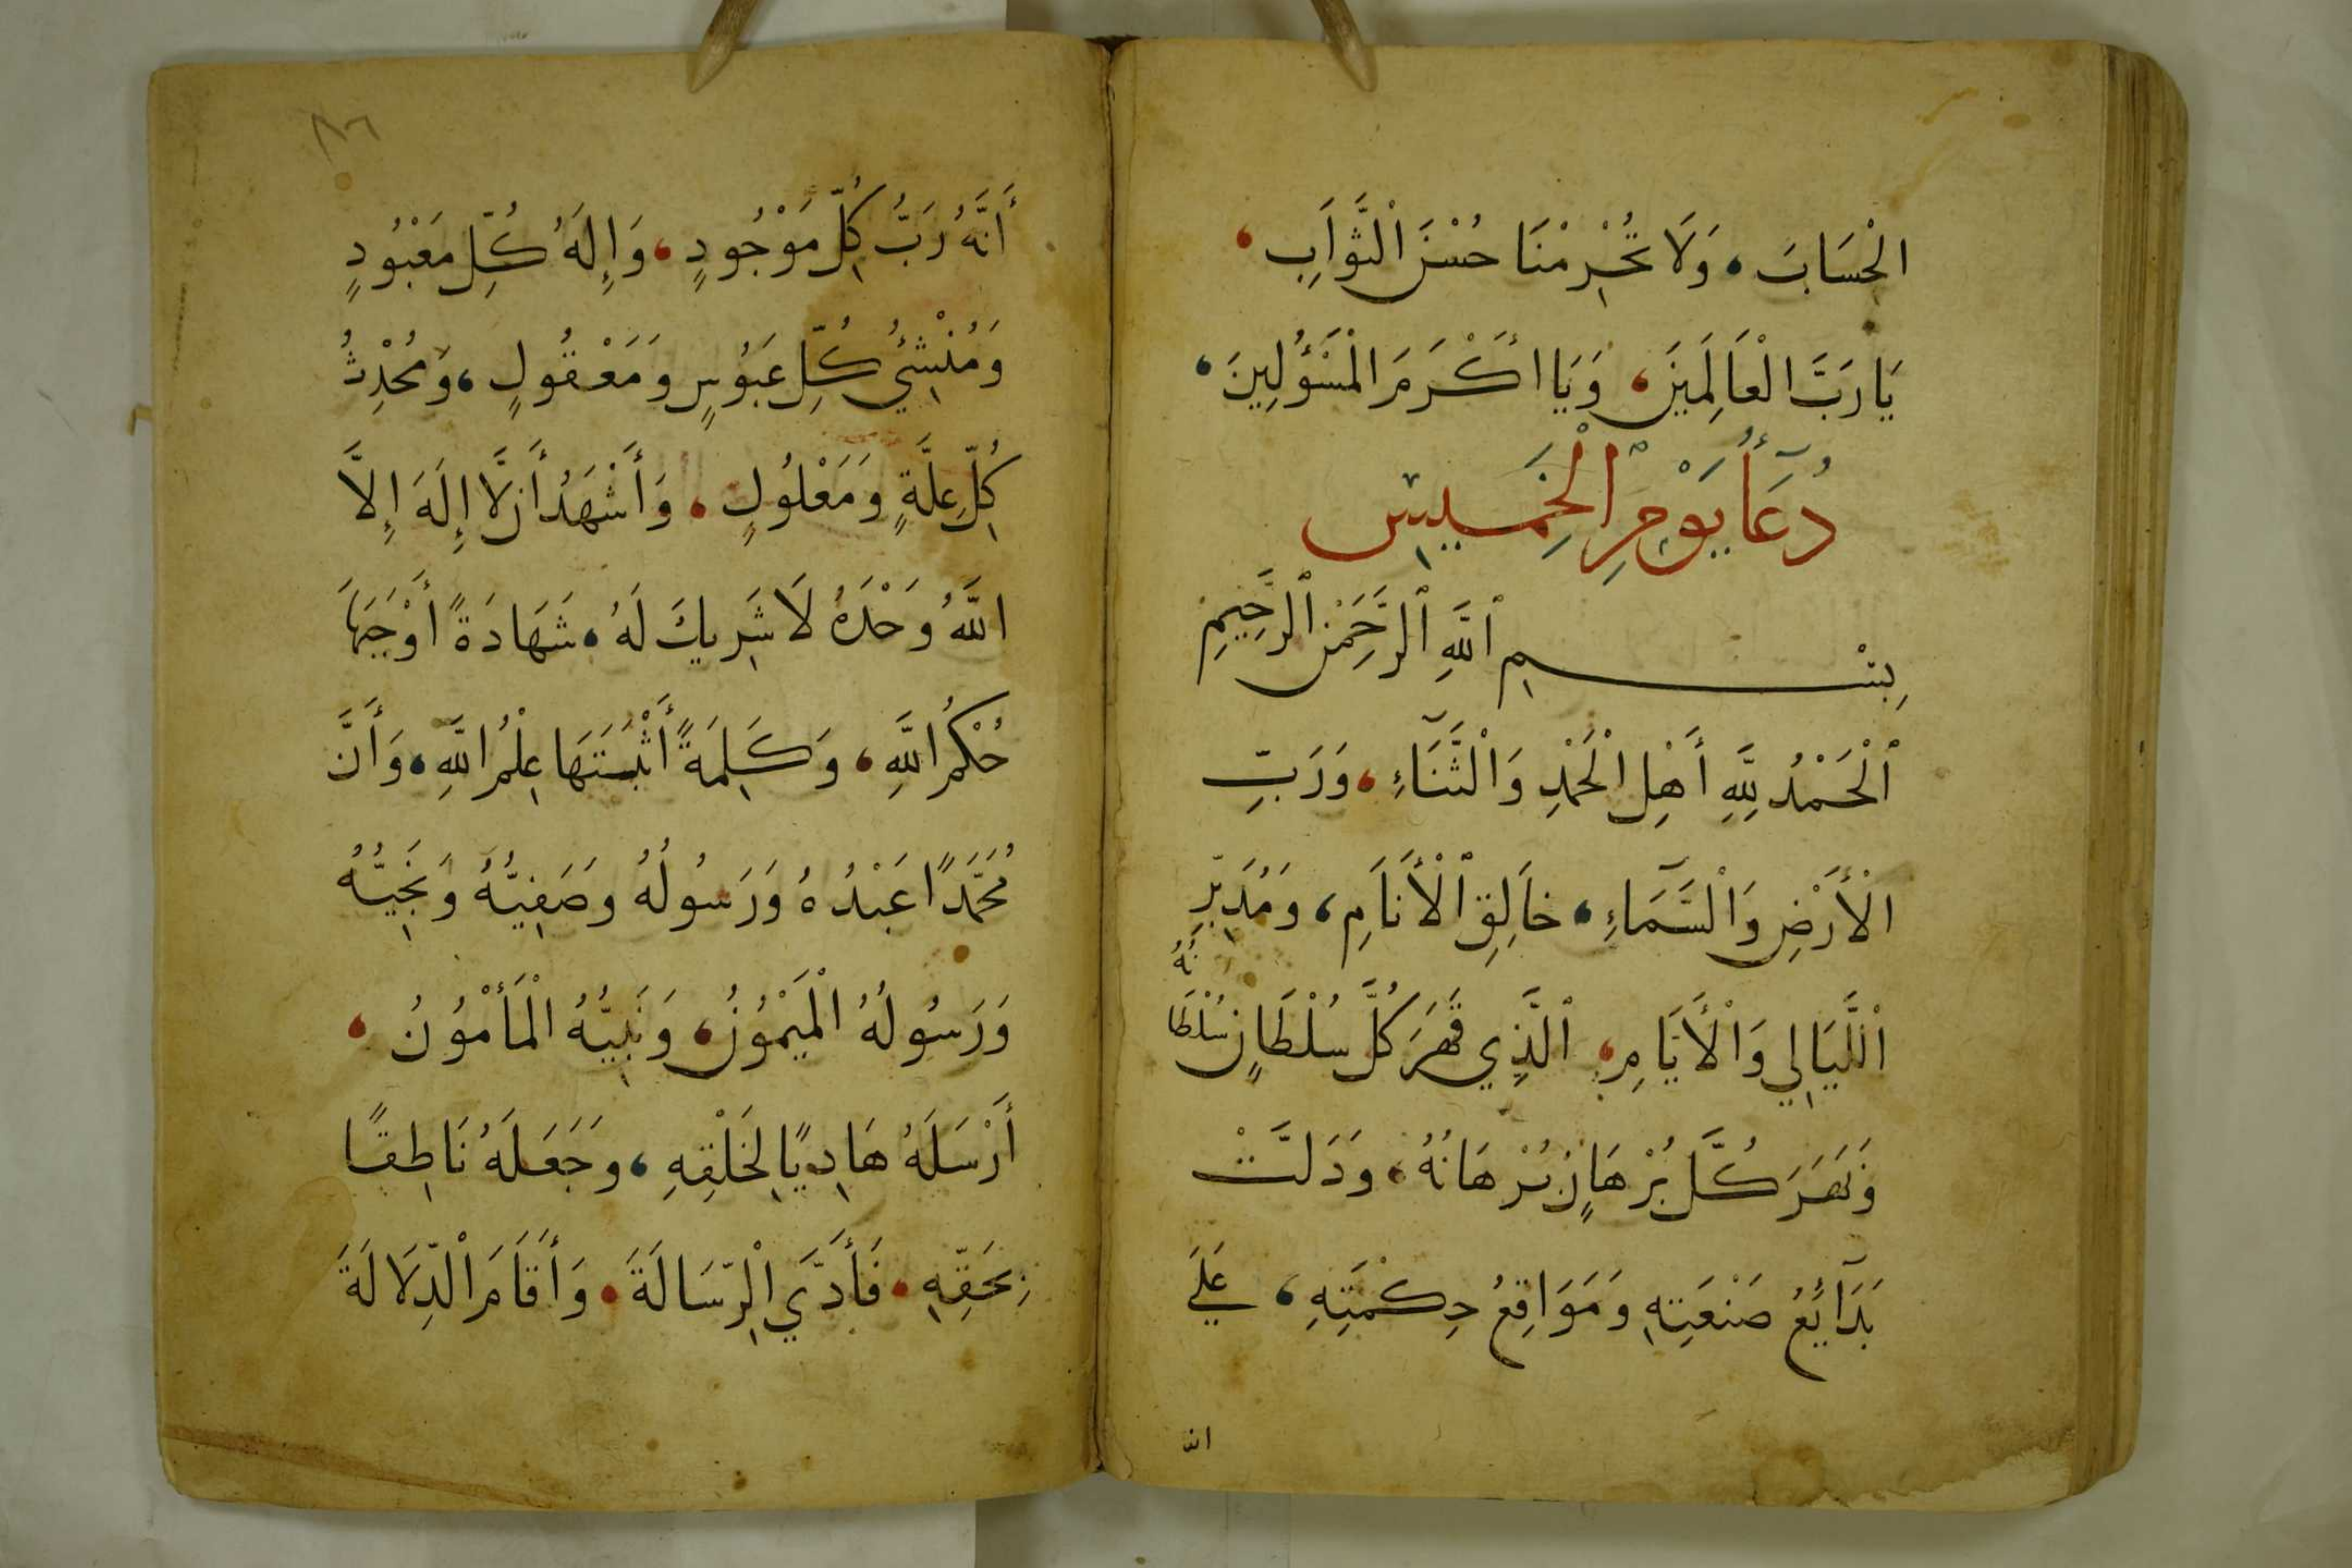 الْحِسَابَ، وَلَا تَحْرِمْنَا حُسْنَ الثَّوَابِ،
يَا رَبَّ الْعَالَمِينَ، وَيَا أَكْرَمَ الْمَسْؤُلِينَ،
دُعَآءُ يَوْمِ الْخَمِيسِ
بِسْمِ ٱللَّهِ ٱلرَّحْمَنِ ٱلرَّحِيمِ
ٱلْحَمْدُ لِلَّهِ أَهْلِ الْحَمْدِ وَالثَّنَآءِ، وَرَبِّ
الْأَرْضِ وَالسَّمَآءِ، خَالِقِ ٱلْأَنَامِ، وَمُدَبِّرِ
اللَّيَالِي وَالْأَيَّامِ، ٱلَّذِي قَهَرَ كُلَّ سُلْطَانٍ سُلْطَانُهُ
وَبَهَرَ كُلَّ بُرْهَانٍ بُرْهَانُهُ، وَدَلَّتْ
بَدَآئِعُ صَنْعَتِهِ وَمَوَاقِعُ حِكْمَتِهِ، عَلَى
انه
٨٦
أَنَّهُ رَبُّ كُلِّ مَوْجُودٍ، وَإِلَهُ كُلِّ مَعْبُودٍ
وَمُنْشِئُ كُلِّ وَمَعْقُولٍ، وَمُحْدِثُ
كُلِّ عِلَّةٍ وَمَعْلُولٍ، وَأَشْهَدُ أَنْ لَّا إِلَهَ إِلَّا
اللَّهُ وَحْدَهُ لَا شَرِيكَ لَهُ، شَهَادَةً أَوْجَبَهَا
حُكْمُ اللَّهِ، وَكَلِمَةً أَثْبَتَهَا عِلْمُ اللَّهِ، وَأَنَّ
مُحَمَّدًا عَبْدُهُ وَرَسُولُهُ وَصَفِيُّهُ وَنَجِيُّهُ
وَرَسُولُهُ الْمَيْمُونُ، وَنَبِيُّهُ الْمَأْمُونُ،
أَرْسَلَهُ هَادِيًا لِخَلْقِهِ، وَجَعَلَهُ نَاطِقًا
بِحَقِّهِ، فَأَدَّى الرِّسَالَةَ، وَأَقَامَ الدِّلَالَةَ